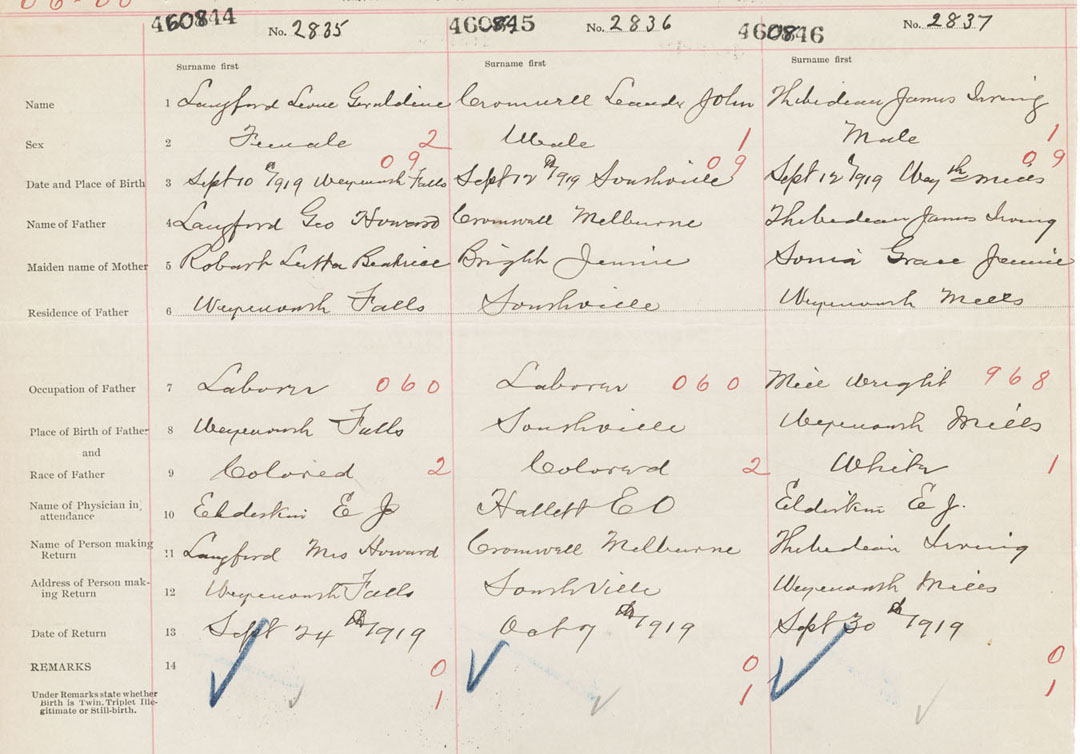 460844 No. 2835 460845 No. 2836 460846 No. 2837
Surname first Surname first Surname first
Name 1 Langford Leone Geraldine Cromwell Leander John Thibedeau James Irving
Sex 2 Female 2 Male 1 Male 1
09 09 09
Date and Place of Birth 3 Sept 10th 1919 Weymouth Falls Sept 12th 1919 Southville Sept 12th 1919 Wayth Mills
Name of Father 4 Langford Geo Howard Cromwell Melburne Thibedeau James Irving
Maiden name of Mother 5 Robart Letta Beatrice Bright Jennie Grace Jennie
Residence of Father 6 Weymouth Falls Southville Weymouth Mills
Occupation of Father 7 Laborer 060 Laborer 060 Mill Wright 968
Place of Birth of Father 8 Weymouth Falls Southville Weymouth Mills
and
Race of Father 9 Colored 2 Colored 2 White 1
Name of Physician in
attendance 10 Elderkin E J Hallett E O Elderkin E J.
Name of Person making
Return 11 Langford Mrs Howard Cromwell Melburne Thibedeau Irving
Address of Person mak-
ing Return 12 Weymouth Falls Southville Weymouth Mills
Date of Return 13 Sept 24th 1919 Oct 7th 1919 Sept 30th 1919
REMARKS 14 0 0 0
Under Remarks state whether
Birth is Twin, Triplet Ille-
gitimate or Still-birth.
1 1 1